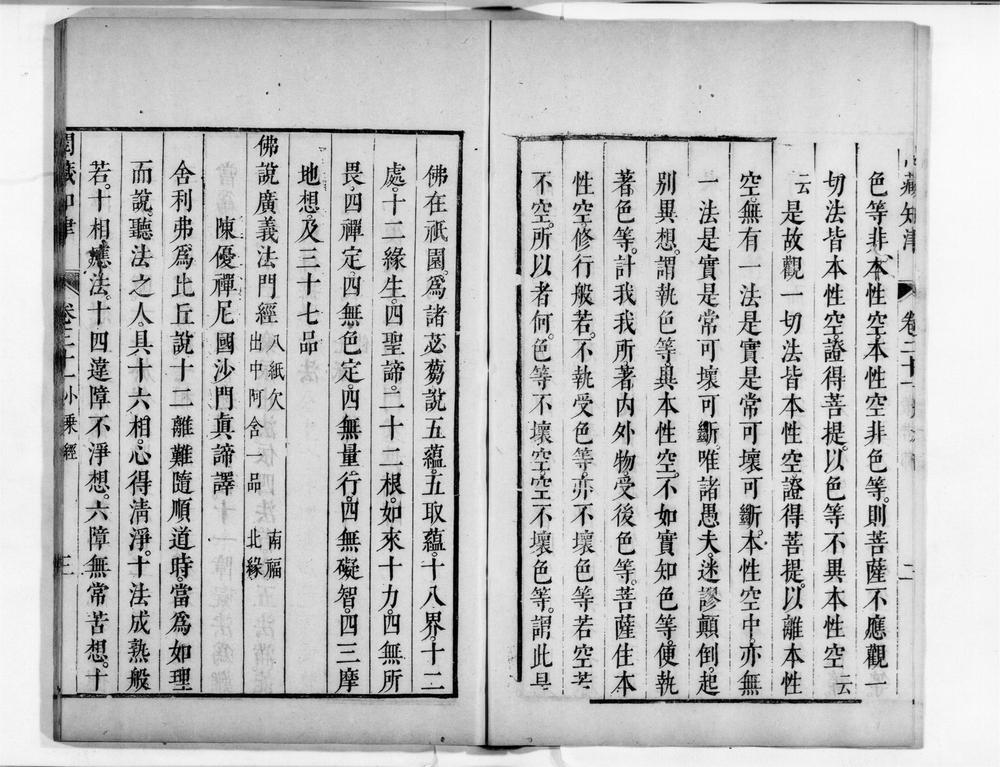 藏知津 卷二十
色等非本性空。本性空非色等。則菩薩不應觀一
切法皆本性空。證得菩提。以色等不異本性空云
云是故觀一切法皆本性空證得菩提。以離本性
空。無有一法是實是常可壞可斷。本性空中。亦無
一法是實是常可壞可斷。唯諸愚夫。迷謬顛倒。起
別異想。謂執色等異本性空。不如實知色等。便執
著色等。計我我所著內外物受後色等。菩薩住本
性空修行般若。不執受色等。亦不壞色等若空若
不空。所以者何。色等不壞空。空不壞色等。謂此是
佛在祇園。爲諸苾蒭說五蘊。五取蘊。十八界。十二
處。十二緣生。四聖諦。二十二根。如來十力。四無所
畏。四禪定。四無色定。四無量行。四無礙智。四三摩
地想。及三十七品
佛說廣義法門經 八紙欠 南福
出中阿含一品 北緣
陳優禪尼國沙門眞諦譯
舍利弗爲比丘說十二離難隨順道時。當爲如理
而說。聽法之人。具十六相。心得清淨。十法成熟般
若。十相應法。十四違障不淨想。六障無常苦想。十
閱藏知津 卷二十 小乘經 三